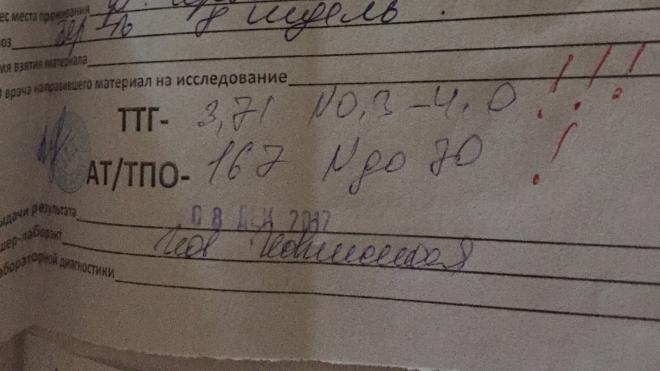 ес места проживания
оз Бер-ть 8 недель.
мя взятия материала
врача направившего материал на исследование
ТТГ- 3,71 N0,3-4,0 !!!
АТ/ТПО- 167 N до 70 !
ыдачи результата
08 ДЕК 2017
ер-лаборант
бораторной диагностики